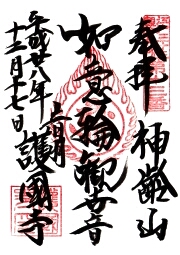 奉拝
神齢山
如意輪観世音
護國寺
平成廿八年
十二月十七日